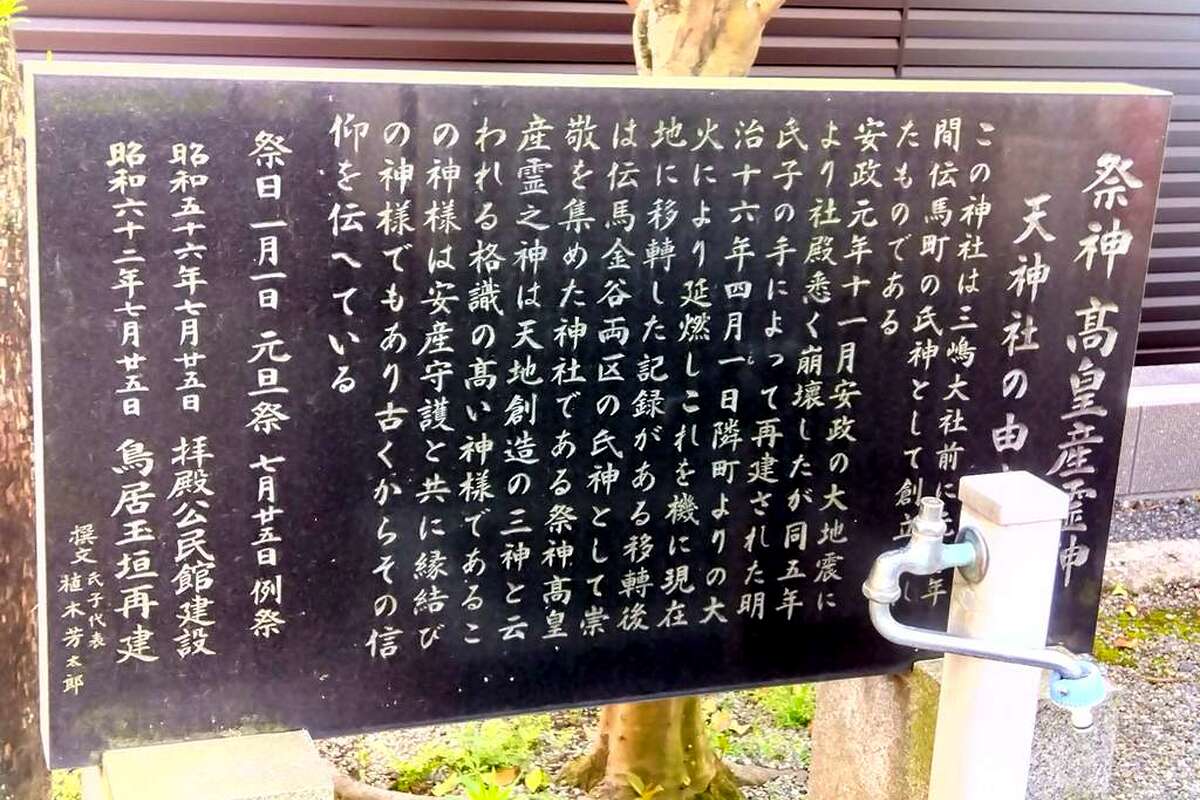 祭神 髙皇産霊神
天神社の由
この神社は三嶋大社前に 年
間伝馬町の氏神として創立し
たものである
安政元年十一月安政の大地震に
より社殿悉く崩壊したが同五年
氏子の手によって再建された明
治十六年四月一日隣町よりの大
火により延燃しこれを機に現在
地に移轉した記録がある移轉後
は伝馬金谷両区の氏神として崇
敬を集めた神社である祭神髙皇
産霊之神は天地創造の三神と云
われる格識の髙い神様であるこ
の神様は安産守護と共に縁結び
の神様でもあり古くからその信
仰を伝へている
祭日 一月一日 元旦祭 七月廿五日 例祭
昭和五十六年七月廿五日 拝殿公民館建設
昭和六十二年七月廿五日 鳥居玉垣再建
撰文 氏子代表 植木芳太郎